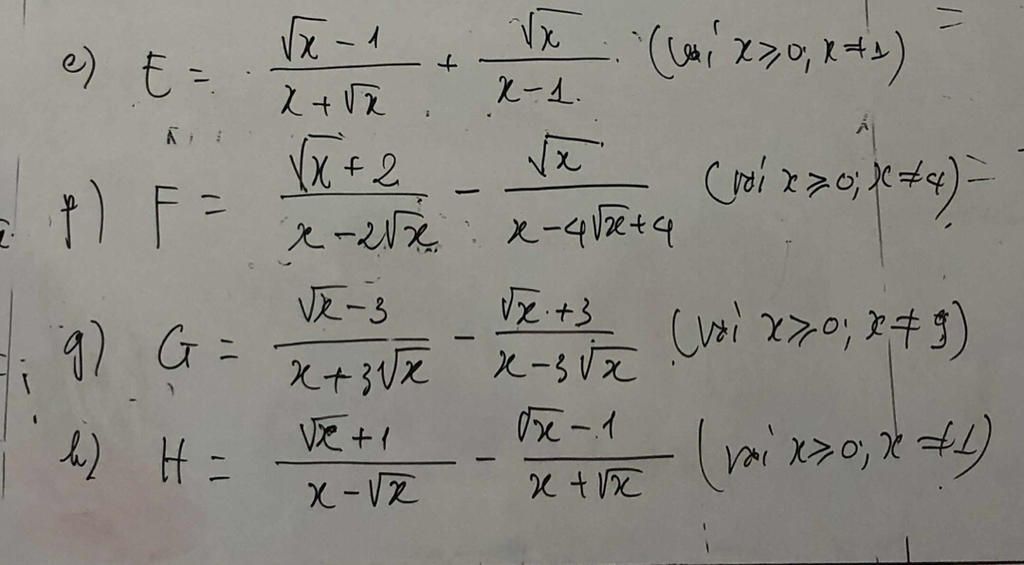 e) E = (√x - 1)/(x + √x) + √x/(x - 1) (với x ≥ 0; x ≠ 1) =
f) F = (√x + 2)/(x - 2√x) - √x/(x - 4√x + 4) (với x ≥ 0; x ≠ 4) =
g) G = (√x - 3)/(x + 3√x) - (√x + 3)/(x - 3√x) (với x ≥ 0; x ≠ 9)
h) H = (√x + 1)/(x - √x) - (√x - 1)/(x + √x) (với x ≥ 0; x ≠ 1)